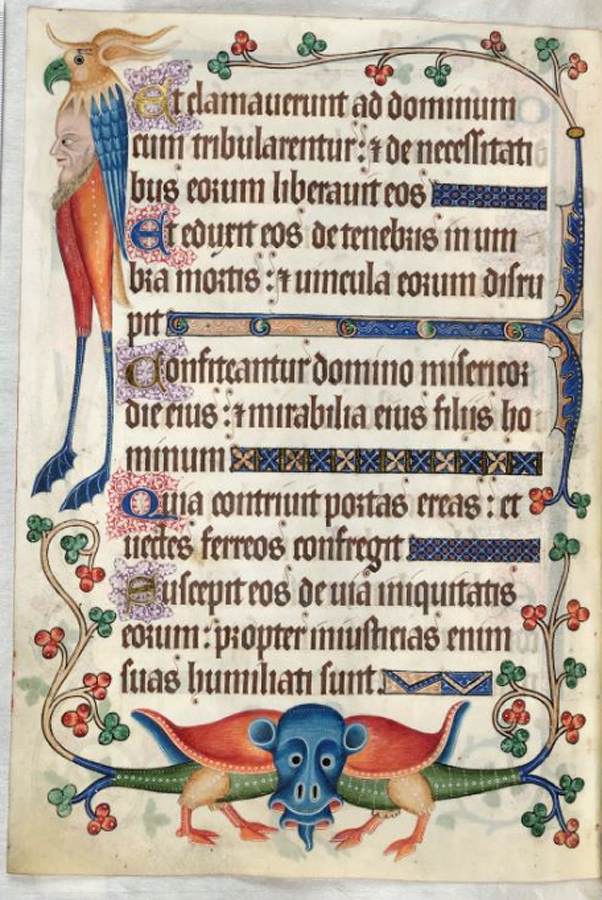 Et clamauerunt ad dominum
cum tribularentur: ⁊ de necessitati
bus eorum liberauit eos
Et eduxit eos de tenebris in um
bra mortis: ⁊ uincula eorum disru
pit
Confiteantur domino misericor
die eius: ⁊ mirabilia eius filiis ho
minum
Quia contriuit portas ereas: et
uectes ferreos confregit
Suscepit eos de uia iniquitatis
eorum: propter iniusticias enim
suas humiliati sunt.